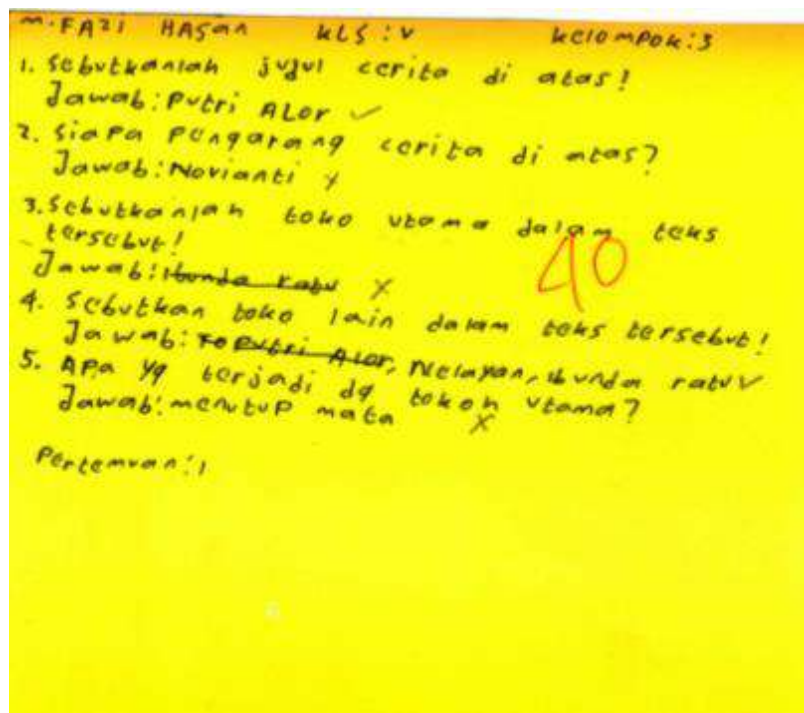 M. FAZI HASAN KLS : V Kelompok : 3
1. Sebutkanlah judul cerita di atas!
Jawab : Putri ALor ✓
2. Siapa Pengarang cerita di atas?
Jawab : Novianti x
3. Sebutkanlah toko utama dalam teks
tersebut!
Jawab : Ibunda ratu x
40
4. Sebutkan toko lain dalam teks tersebut!
Jawab : To Putri Alor, Nelayan, ibunda ratu ✓
5. APa yg terjadi dg tokoh utama?
Jawab : menutup mata x
Pertemuan : 1